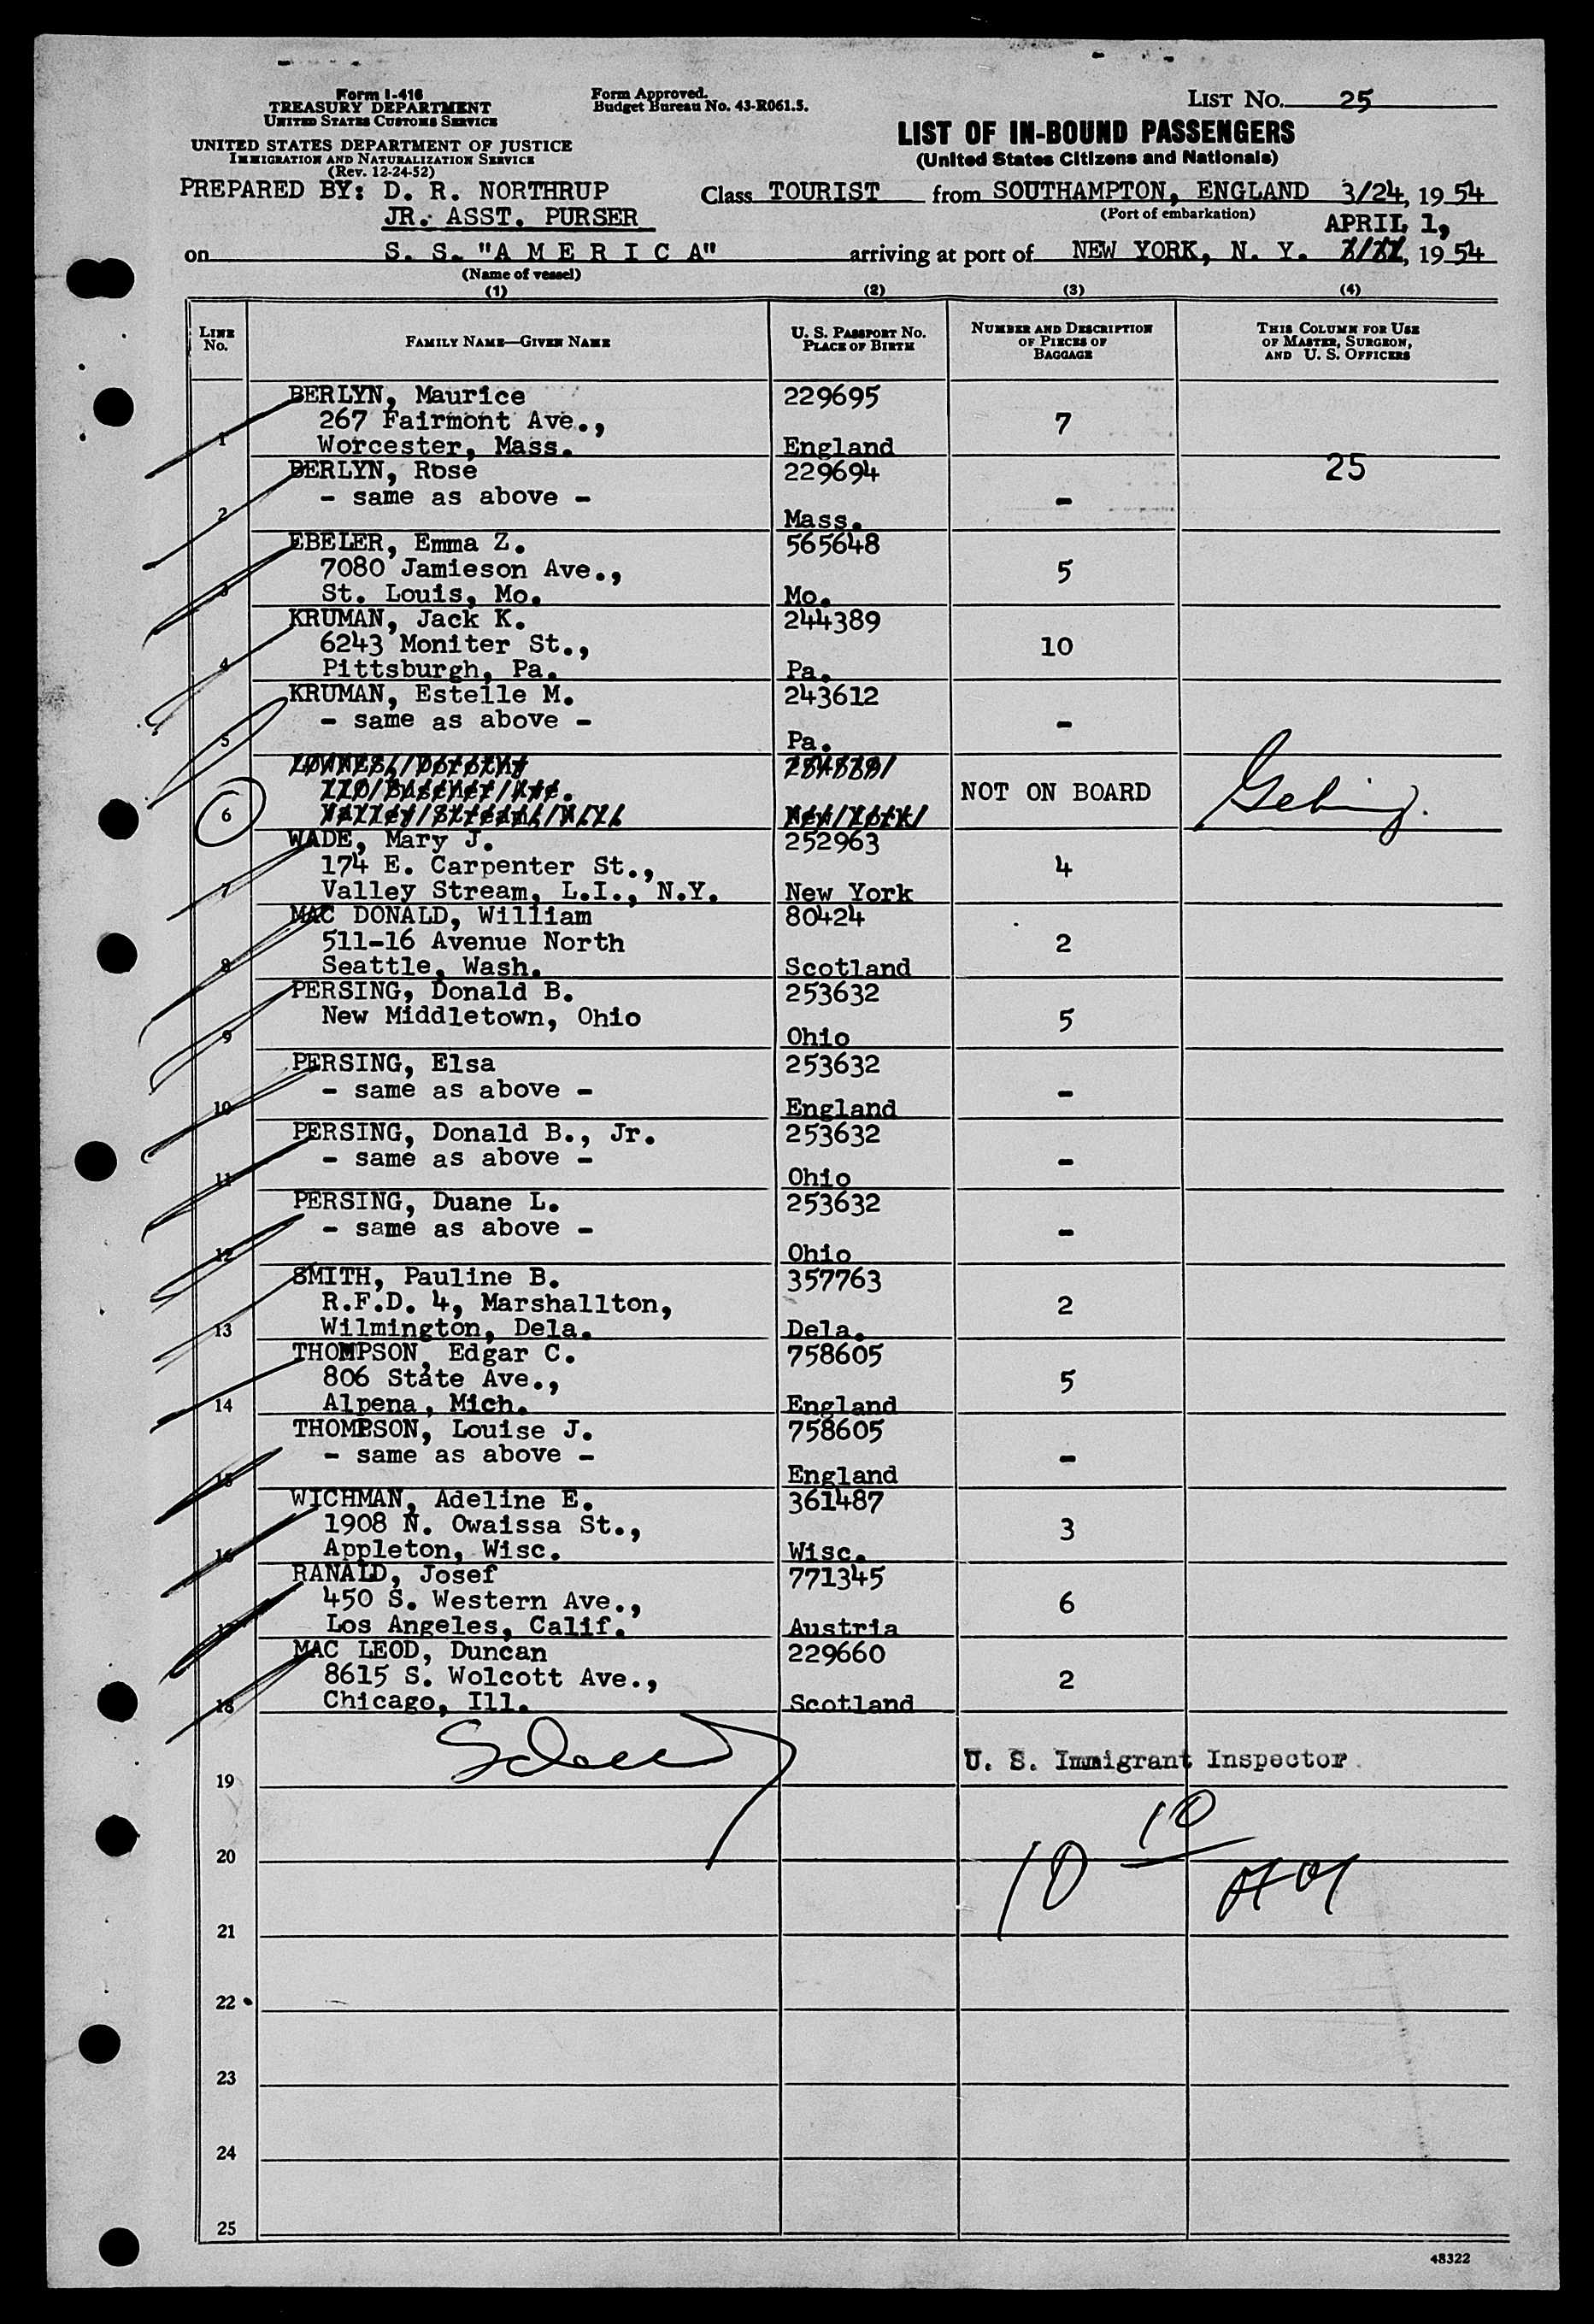 Form I-416
TREASURY DEPARTMENT
UNITED STATES CUSTOMS SERVICE
UNITED STATES DEPARTMENT OF JUSTICE
IMMIGRATION AND NATURALIZATION SERVICE
(Rev. 12-24-52)
Form Approved.
Budget Bureau No. 43-R061.5.
LIST NO. 25
LIST OF IN-BOUND PASSENGERS
(United States Citizens and Nationals)
PREPARED BY: D. R. NORTHRUP
JR. ASST. PURSER
Class TOURIST from SOUTHAMPTON, ENGLAND 3/24, 1954
(Port of embarkation)
APRIL 1,
on S. S. "A M E R I C A" arriving at port of NEW YORK, N. Y. , 1954
(Name of vessel)
(1) (2) (3) (4)
LINE NO.
FAMILY NAME—GIVEN NAME
U. S. PASSPORT NO.
PLACE OF BIRTH
NUMBER AND DESCRIPTION
OF PIECES OF
BAGGAGE
THIS COLUMN FOR USE
OF MASTER, SURGEON,
AND U. S. OFFICERS
BERLYN, Maurice 229695
267 Fairmont Ave., 7
1 Worcester, Mass. England
25
BERLYN, Rose 229694
- same as above - -
2 Mass.
EBELER, Emma Z. 565648
7080 Jamieson Ave., 5
3 St. Louis, Mo. Mo.
KRUMAN, Jack K. 244389
6243 Moniter St., 10
4 Pittsburgh, Pa. Pa.
KRUMAN, Estelle M. 243612
- same as above - -
5 Pa.
NOT ON BOARD
6
WADE, Mary J. 252963
174 E. Carpenter St., 4
7 Valley Stream, L.I., N.Y. New York
MAC DONALD, William 80424
511-16 Avenue North 2
8 Seattle, Wash. Scotland
PERSING, Donald B. 253632
New Middletown, Ohio 5
9 Ohio
PERSING, Elsa 253632
- same as above - -
10 England
PERSING, Donald B., Jr. 253632
- same as above - -
11 Ohio
PERSING, Duane L. 253632
- same as above - -
12 Ohio
SMITH, Pauline B. 357763
R.F.D. 4, Marshallton, 2
13 Wilmington, Dela. Dela.
THOMPSON, Edgar C. 758605
806 State Ave., 5
14 Alpena, Mich. England
THOMPSON, Louise J. 758605
- same as above - -
15 England
WICHMAN, Adeline E. 361487
1908 N. Owaissa St., 3
16 Appleton, Wisc. Wisc.
RANALD, Josef 771345
450 S. Western Ave., 6
17 Los Angeles, Calif. Austria
MAC LEOD, Duncan 229660
8615 S. Wolcott Ave., 2
18 Chicago, Ill. Scotland
U. S. Immigrant Inspector
19
10
20
10
21
22
23
24
25
48322